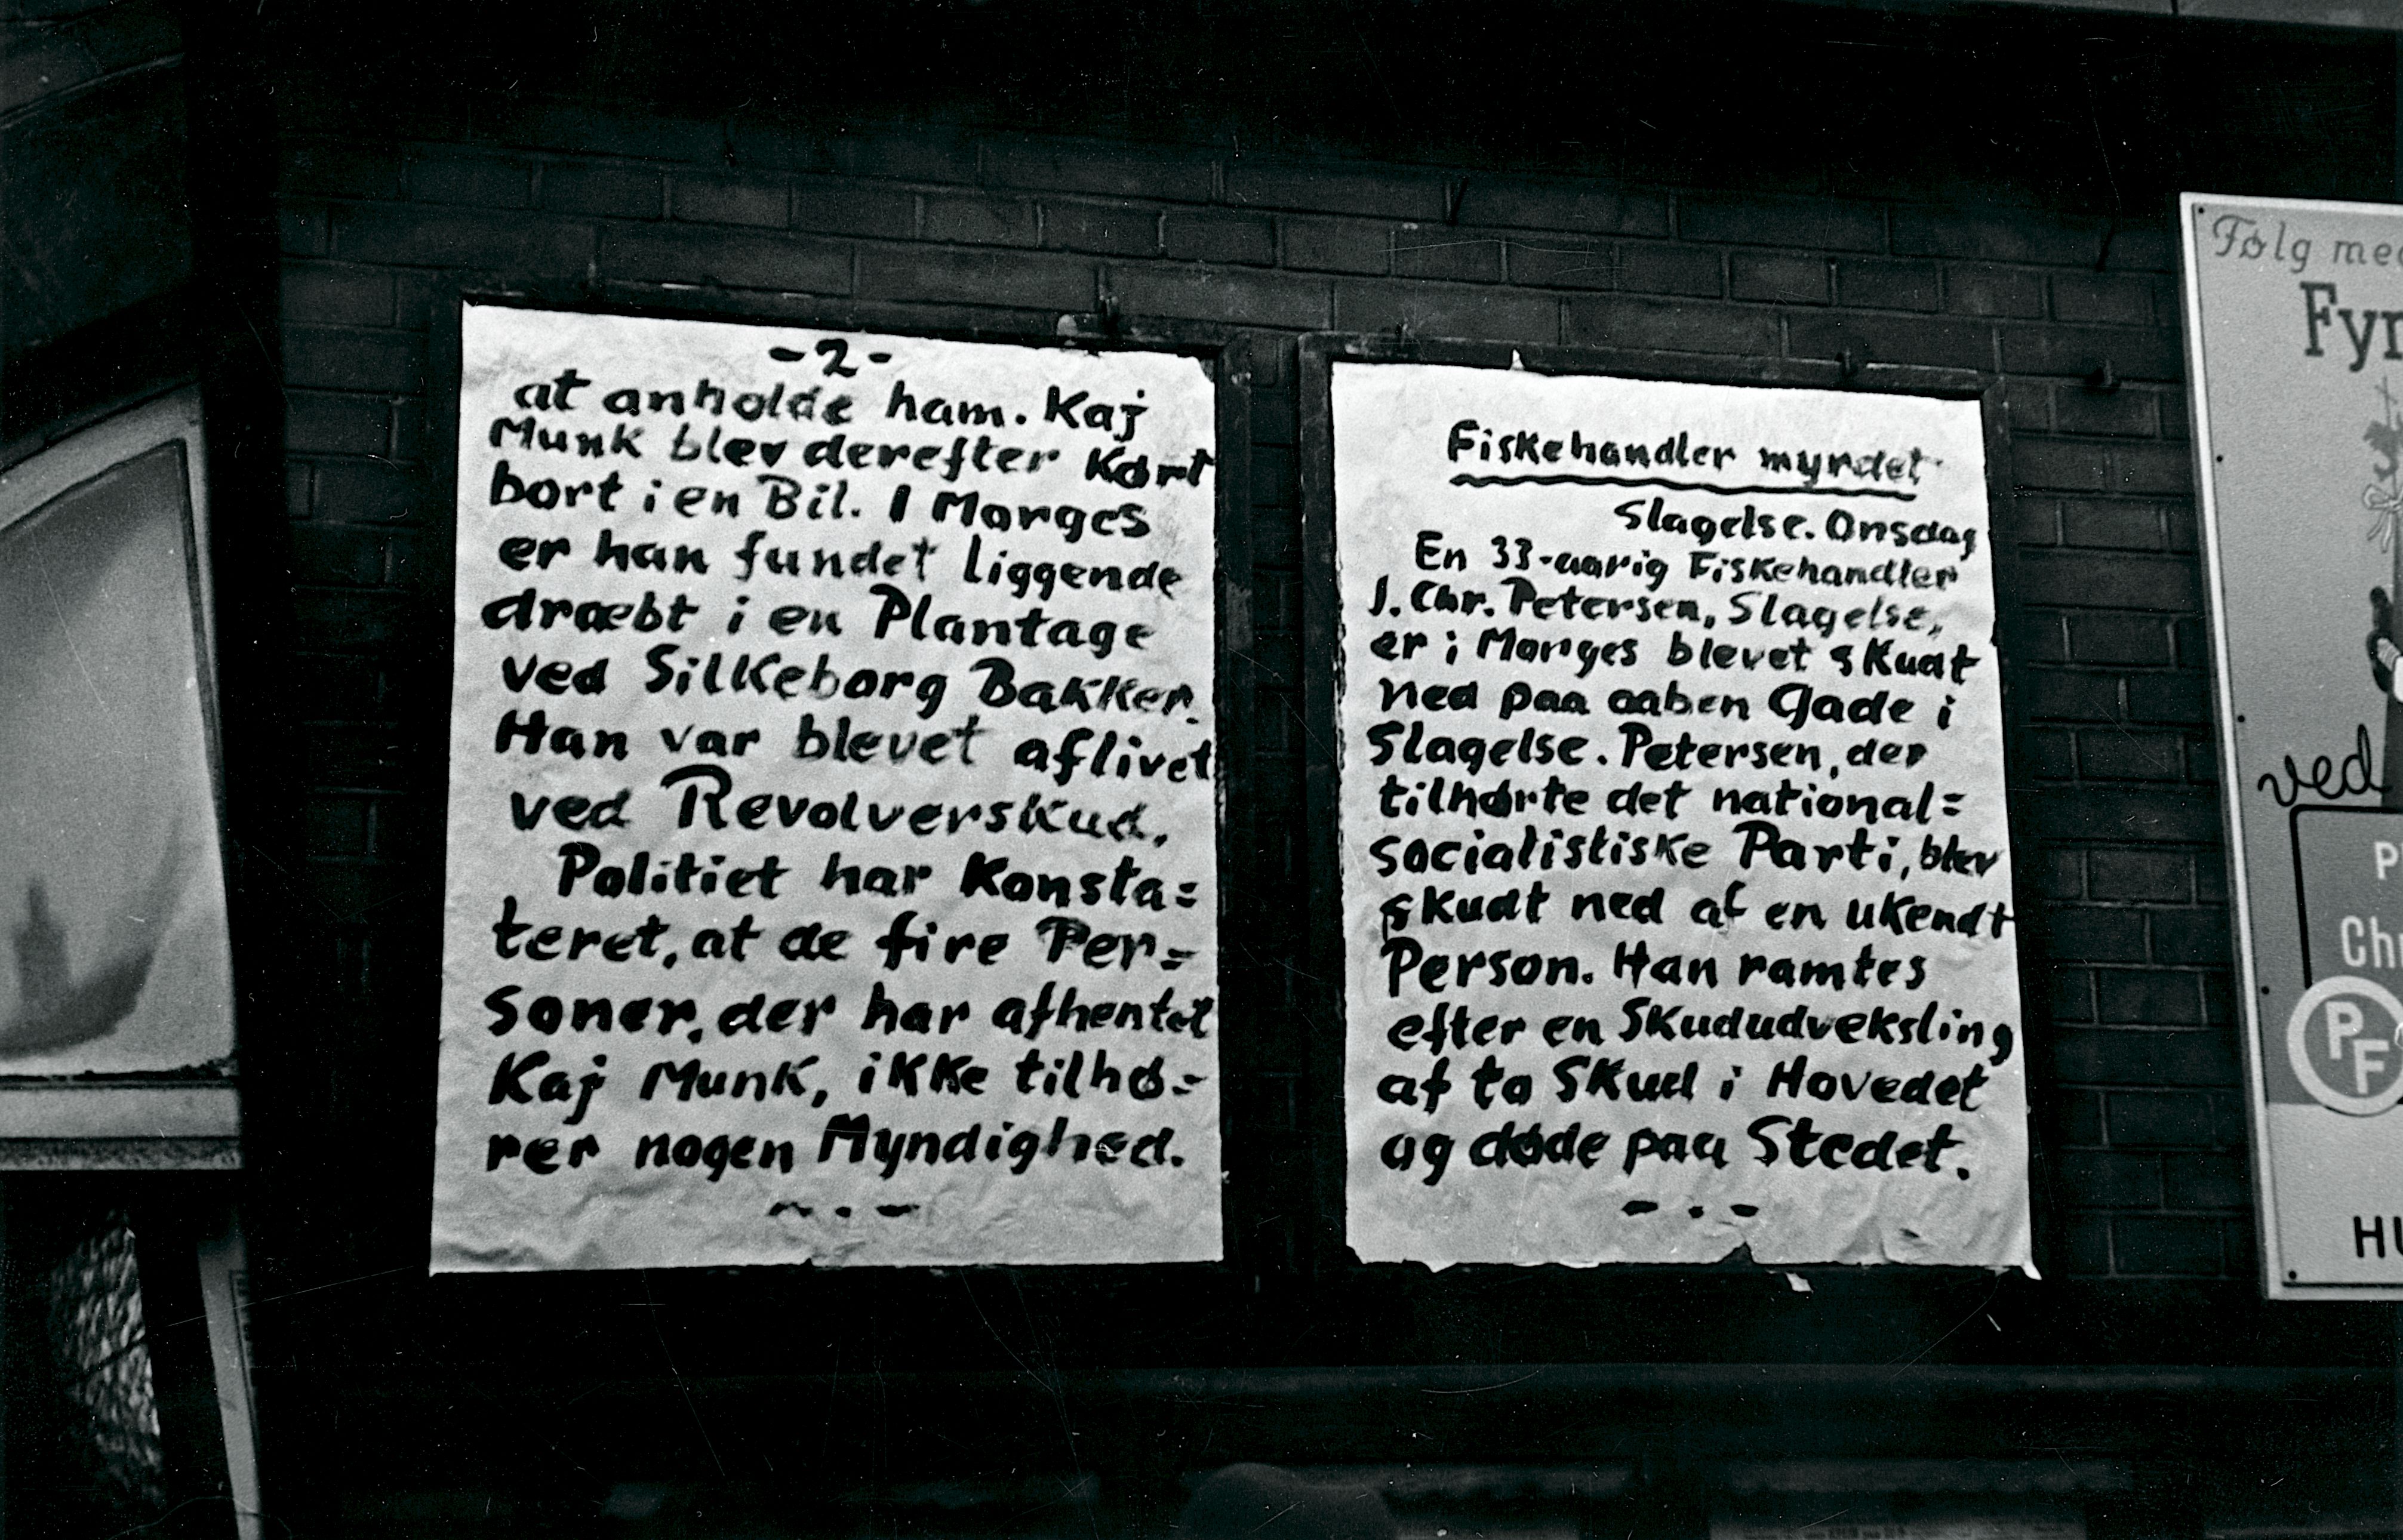 -2-
at anholde ham. Kaj
Munk blev derefter Kørt
bort i en Bil. I Morges
er han fundet liggende
dræbt i en Plantage
ved Silkeborg Bakker.
Han var blevet aflivet
ved Revolverskud.
Politiet har Konsta=
teret, at de fire Per=
soner, der har afhentet
Kaj Munk, ikke tilhø=
rer nogen Myndighed.
- . -
Fiskehandler myrdet
Slagelse. Onsdag
En 33-aarig Fiskehandler
J. Chr. Petersen, Slagelse,
er i Morges blevet skudt
ned paa aaben Gade i
Slagelse. Petersen, der
tilhørte det national=
socialistiske Parti, blev
skudt ned af en ukendt
Person. Han ramtes
efter en Skududveksling
af to Skud i Hovedet
og døde paa Stedet.
- . -
Følg med
Fyn
ved
P
Chr
PF
HU